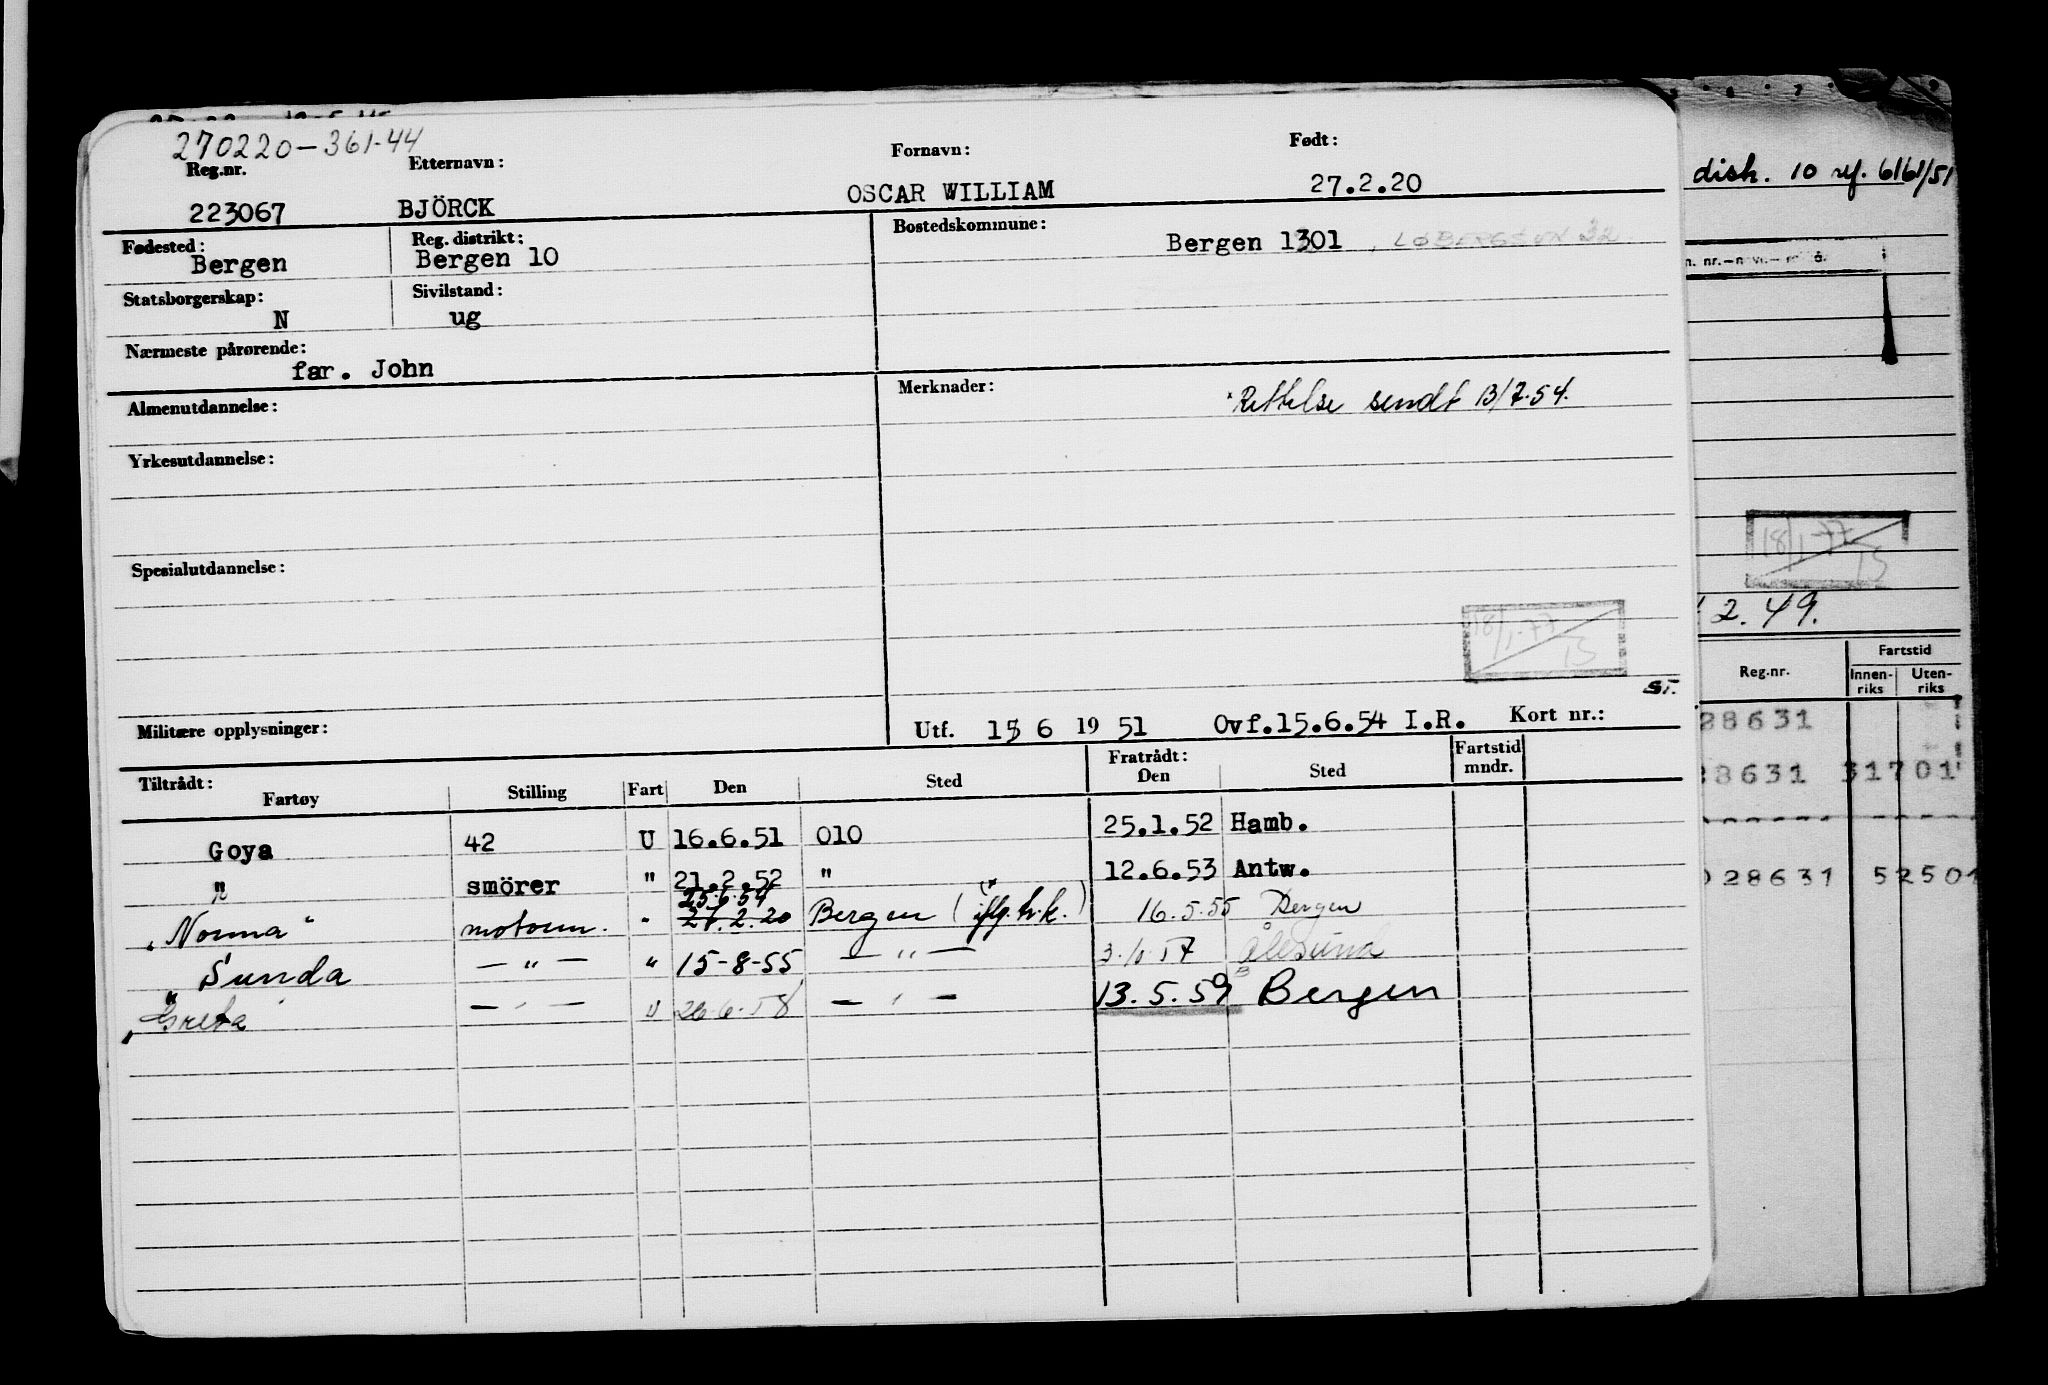 270220-361-44
Reg.nr. Etternavn: Fornavn: Født:
223067 BJÖRCK OSCAR WILLIAM 27.2.20
disk. 10 ref. 6161/51
Fødested: Bergen Reg. distrikt: Bergen 10 Bostedskommune: Bergen 1301
Statsborgerskap: N Sivilstand: ug
Nærmeste pårørende: far. John
Almenutdannelse: Merknader: Rettelse sendt 13/7.54.
Yrkesutdannelse:
Spesialutdannelse:
18/1-77 15
18/1-77 15
2.49.
ST.
Militære opplysninger: Utf. 15 6 1951 Ovf.15.6.54 I.R. Kort nr.:
Tiltrådt: Fratrådt: Fartstid mndr.
Fartøy Stilling Fart Den Sted Den Sted
Goya 42 U 16.6.51 010 25.1.52 Hamb.
" smörer " 21.2.52 " 12.6.53 Antw.
25.6.54
"Norma" motorm. " 27.2.20 Bergen (iflg. h.k.) 16.5.55 Bergen
"Sunda — " — " 15-8-55 — " — Ålesund
"Greta — " — " 26.6.58 — " — 13.5.59 Bergen
Reg.nr. Fartstid
Innen-riks Uten-riks
28631
28631 31701
028631 52501